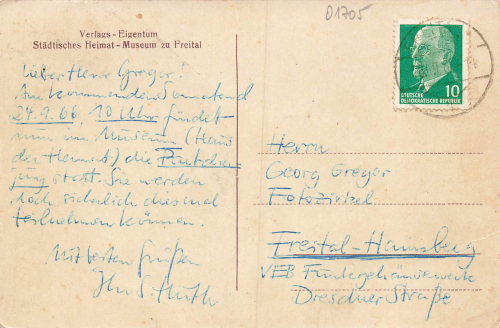 01705
Verlags-Eigentum
Städtisches Heimat-Museum zu Freital
Lieber Herr Greger!
Am kommenden Sonnabend
24.9.66, 10 Uhr findet
nun im Museum (Haus
der Heimat) die
statt. Sie werden
doch sicherlich diesmal
teilnehmen können.
Mit besten Grüßen
10
DEUTSCHE
DEMOKRATISCHE REPUBLIK
Herrn
Georg Greger
Fotozirkel
Freital-Hainsberg
VEB
Dresdner Straße